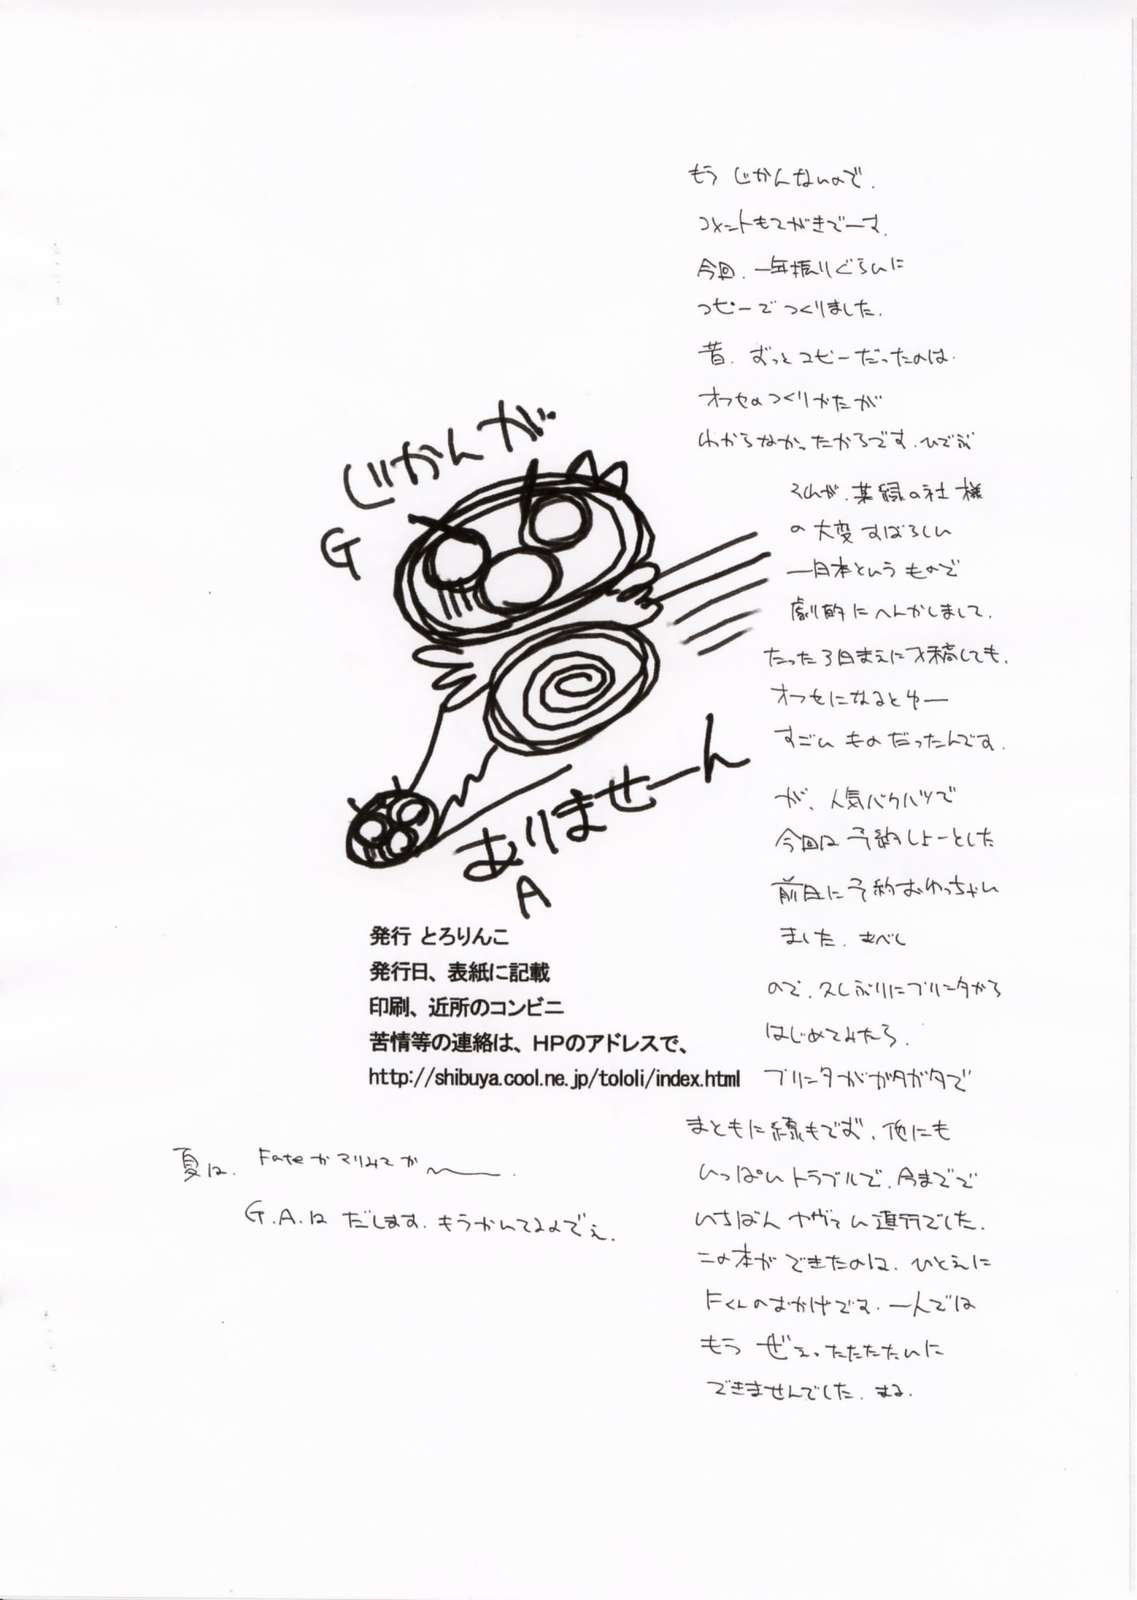 もうじかんないので.
コメントもてがきでーす.
今回.一年振りぐらいに
コピーでつくりました.
昔.ずっとコピーだったのは.
オフセのつくりかたが
わからなかったからです.ひでぶ
それが.葉緑の社様
の大変すばらしい
一日本というもので
劇的にへんかしまして.
たった3日まえに入稿しても.
オフセになるとゆー
すごいものだったんです.
が、人気バクハツで
今回は予約しよーとした
前日に予約おわっちゃい
ました.あべし
ので.久しぶりにプリンタから
はじめてみたら.
プリンタがガタガタで
まともに線もでず.他にも
いっぱいトラブルで.今までで
いちばんヤヴァい進行でした.
この本ができたのは.ひとえに
Fくんのおかげです.一人では
もうぜぇったたたたいに
できませんでした.まる.
じかんが
G
ありませーん
A
発行 とろりんこ
発行日、表紙に記載
印刷、近所のコンビニ
苦情等の連絡は、HPのアドレスで、
http://shibuya.cool.ne.jp/tololi/index.html
夏は.Fateかマリみてか〜.
G.A.は だします.もうかいてるのでぇ.